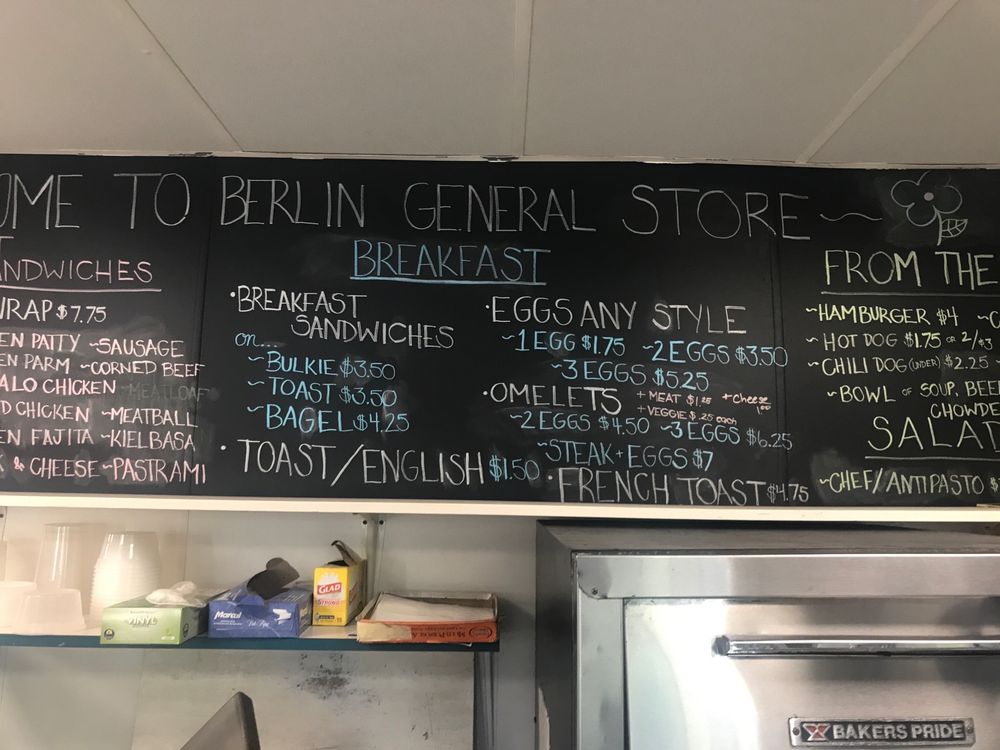 OME TO BERLIN GENERAL STORE
NDWICHES
WRAP $7.75
EN PATTY ~SAUSAGE
EN PARM ~CORNED BEEF
ALO CHICKEN ~MEATLOAF
D CHICKEN ~MEATBALL
EN FAJITA ~KIELBASA
K & CHEESE ~PASTRAMI
BREAKFAST
•BREAKFAST
SANDWICHES
on...
~BULKIE $3.50
~TOAST $3.50
~BAGEL $4.25
•TOAST/ENGLISH $1.50
•EGGS ANY STYLE
~1 EGG $1.75 ~2 EGGS $3.50
~3 EGGS $5.25
•OMELETS +MEAT $1.25 +Cheese
+VEGGIE $.25 each
~2 EGGS $4.50 ~3 EGGS $6.25
~STEAK + EGGS $7
•FRENCH TOAST $4.75
FROM THE
~HAMBURGER $4
~HOT DOG $1.75 OR 2/$3
~CHILI DOG (UNDER) $2.25
~BOWL OF SOUP, BEE
CHOWDE
SALAD
~CHEF/ANTIPASTO $
VINYL
Marcal
GLAD
STRONG
BAKERS PRIDE